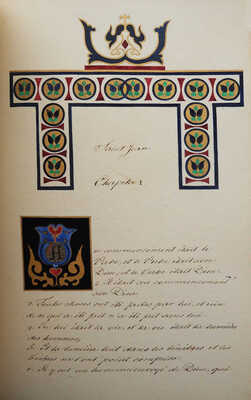 Saint Jean
Chapitre 1
u commencement était le
Verbe, et le Verbe était avec
Dieu, et le Verbe était Dieu.
2. Il était au commencement
avec Dieu.
3. Toutes choses ont été faites par lui, et rien
de ce qui a été fait n'a été fait sans lui.
4. En lui était la vie, et la vie était la lumière
des hommes,
5. Et la lumière luit dans les ténèbres et les
ténèbres ne l'ont point comprise.
6. Il y eut un homme envoyé de Dieu, qui